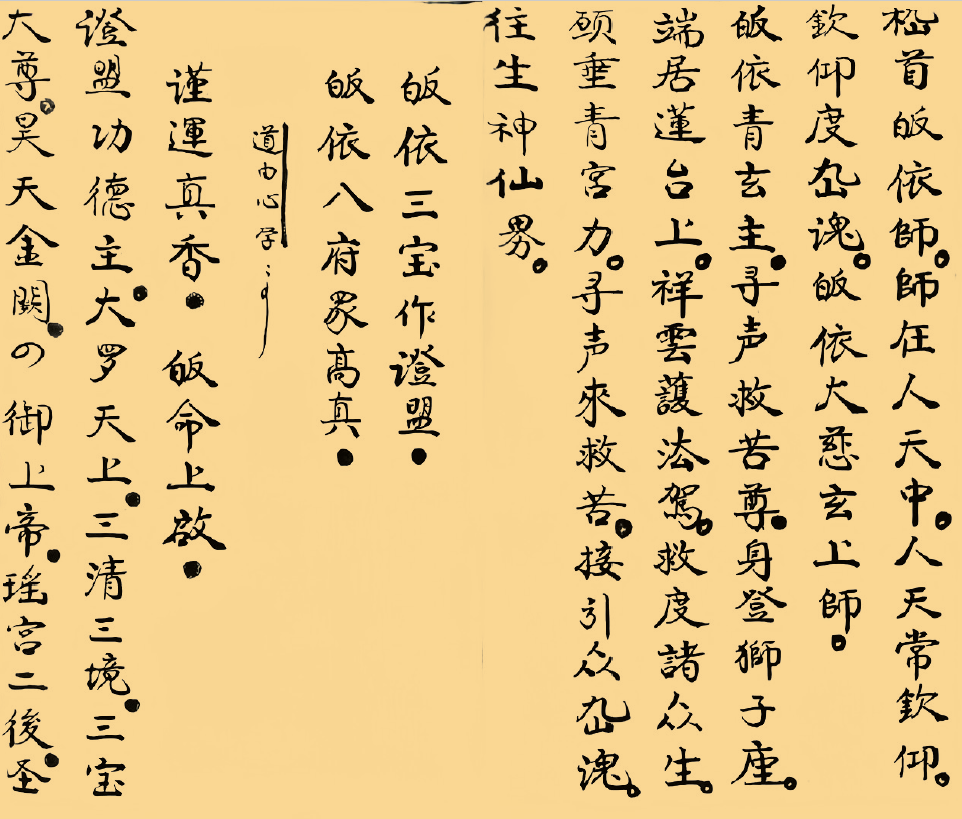 嵇首皈依師。師在人天中。人天常欽仰。
欽仰度幽魂。皈依大慈玄上師。
皈依青玄主。寻声救苦尊。身登獅子座。
端居蓮台上。祥雲護法駕。救度諸众生。
願垂青宮力。寻声來救苦。接引众幽魂。
往生神仙界。
皈依三宝作證盟。
皈依八府眾高真。
道由心学
谨運真香。皈命上啟。
證盟功德主。大罗天上。三清三境。三宝
大尊。昊天金闕。の御上帝。瑶宮二後圣。